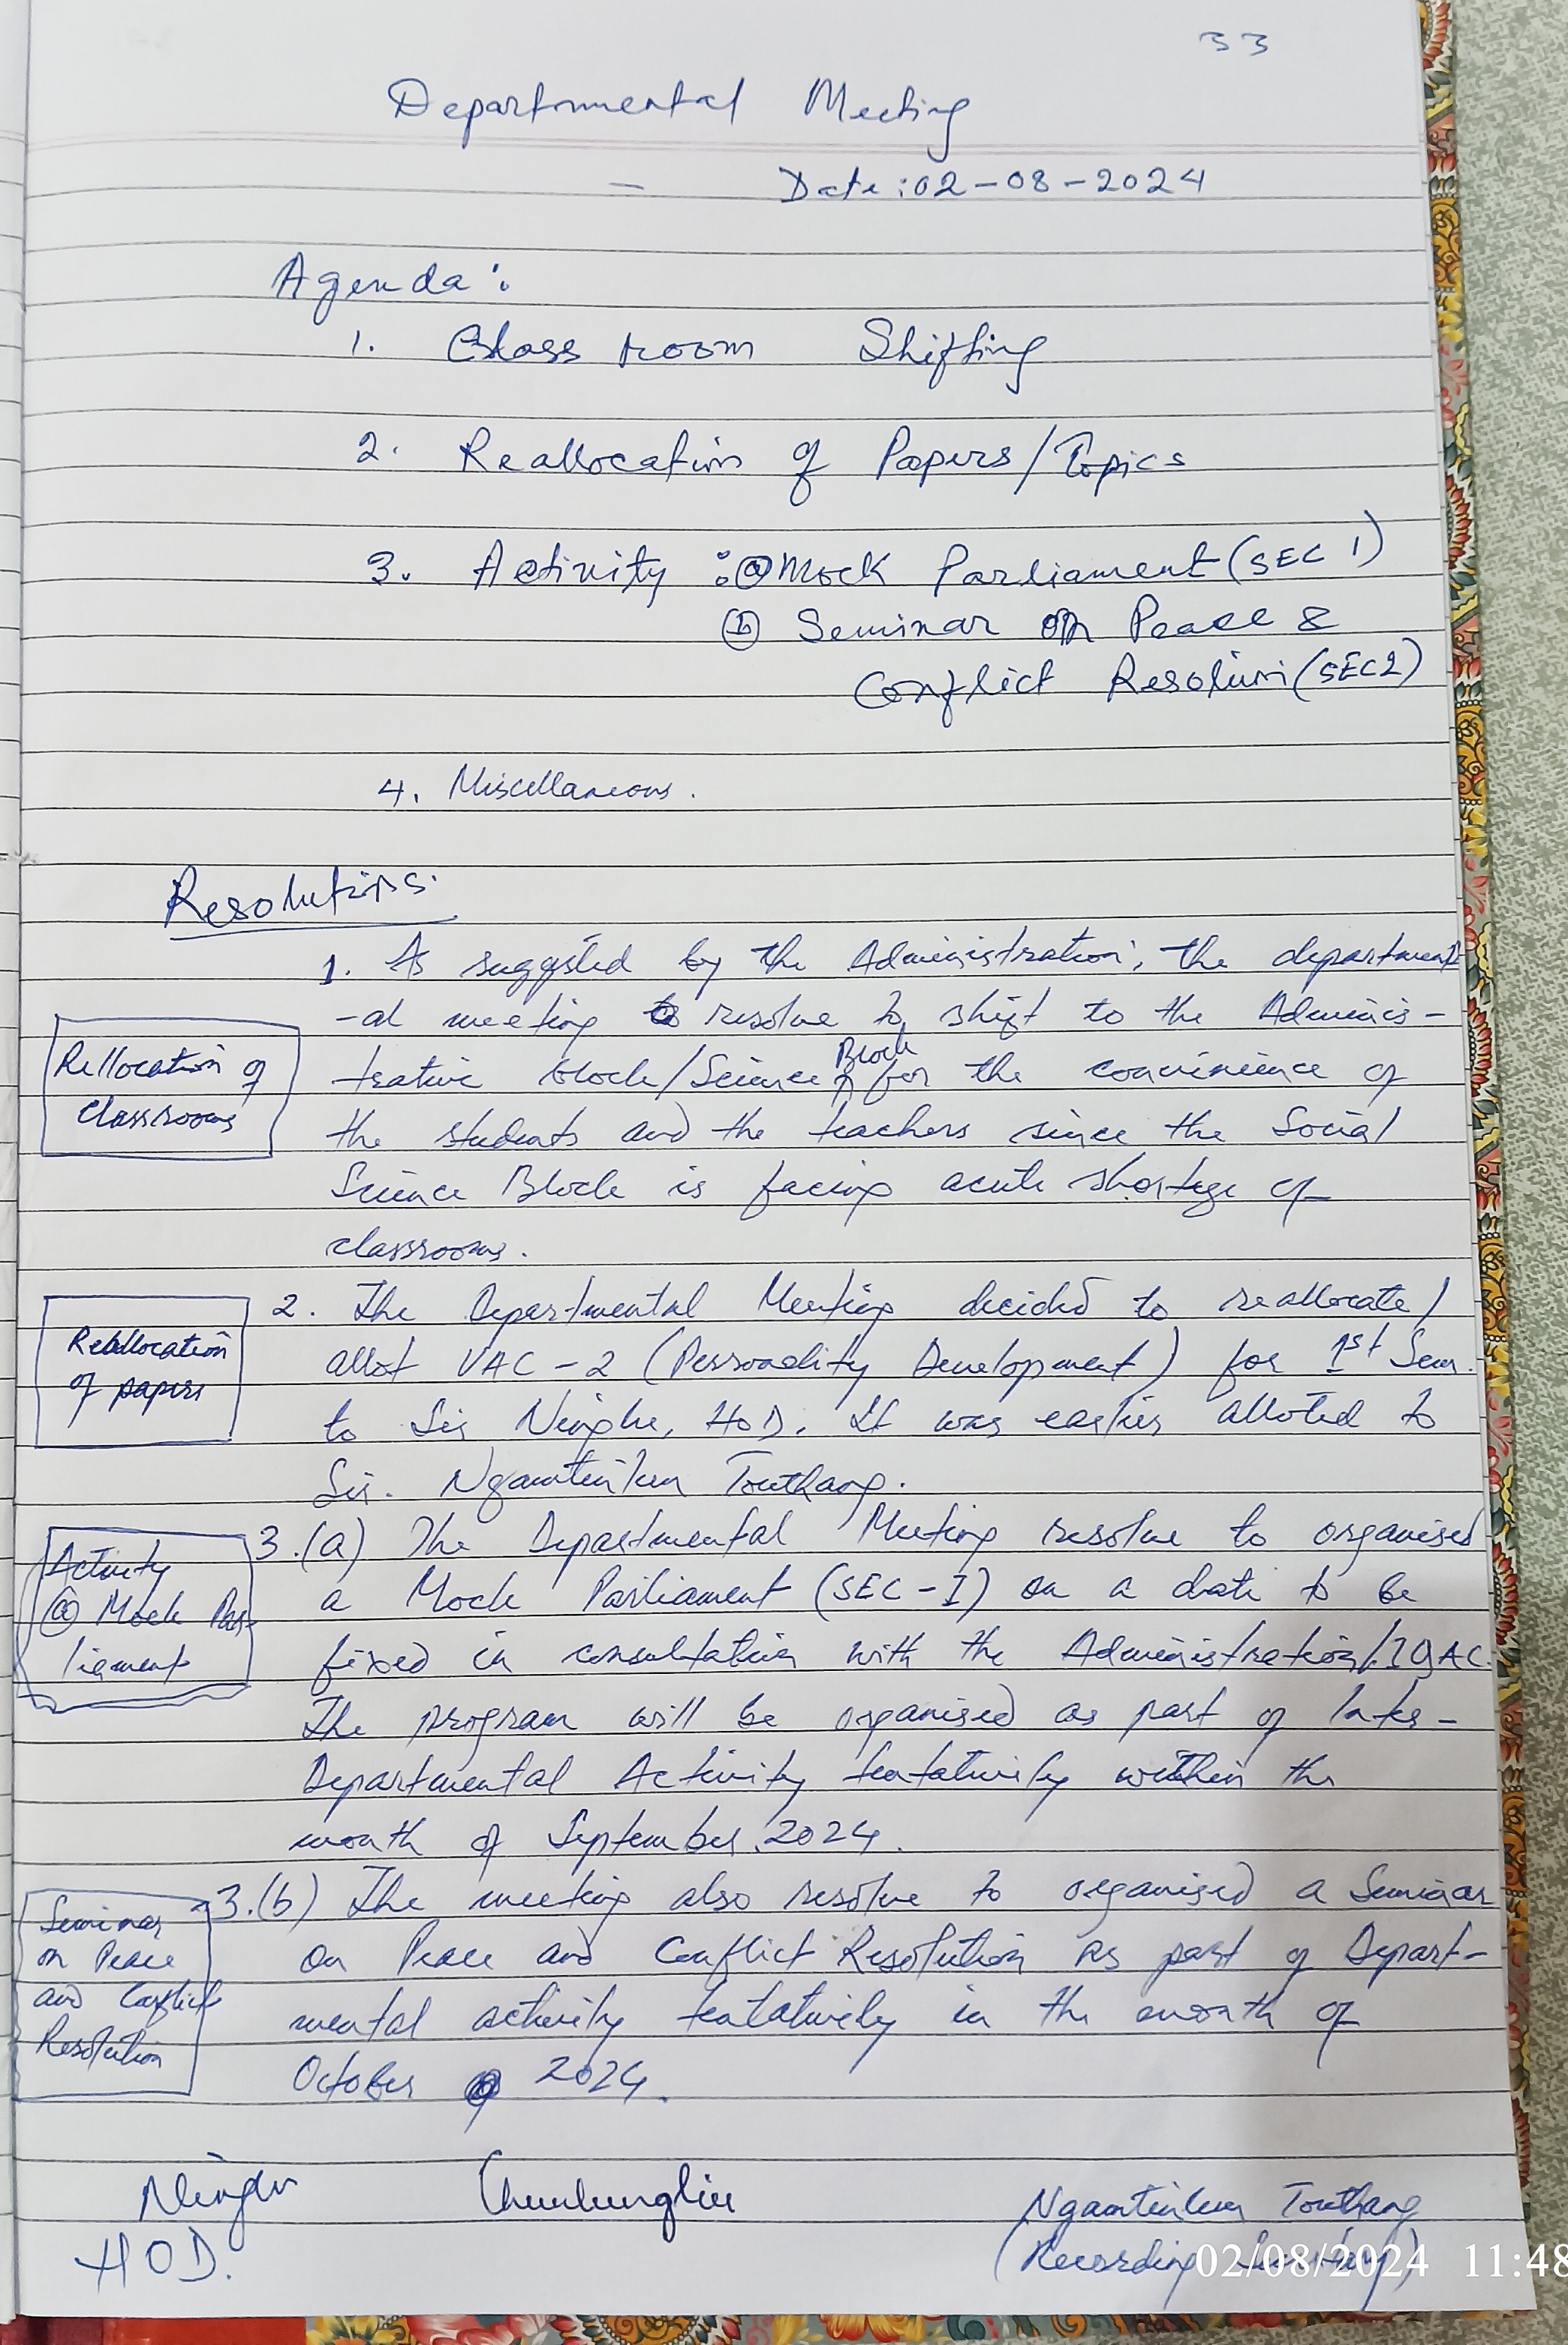 33
Departmental Meeting
Date : 02-08-2024
Agenda :
1. Class room Shifting
2. Reallocation of Papers/Topics
3. Activity : (a) Mock Parliament (SEC 1)
(b) Seminar on Peace &
Conflict Resolution (SEC2)
4. Miscellaneous.
Resolutions.
1. As suggested by the Administration, the department
-al meeting resolve to shift to the Adminis-
Rellocation of
classrooms
trative block/Science Block for the convinience of
the students and the teachers since the Social
Science Block is facing acute shortage of
classrooms.
Reallocation
of papers
2. The Departmental Meeting decided to reallocate/
allot VAC-2 (Personality Development) for 1st Sem.
to Sir Ninghe, HoD. It was earlier alloted to
Sir. Ngamtinlun Touthang.
Activity
(a) Mock Par-
liament
3.(a) The Departmental Meeting resolve to organised
a Mock Parliament (SEC-I) on a date to be
fixed in consultation with the Administration/IQAC.
The program will be organised as part of Inter-
Departmental Activity tentatively within the
month of September 2024.
Seminar
on Peace
and Conflict
Resolution
3.(b) The meeting also resolve to organised a Seminar
on Peace and Conflict Resolution as part of Depart-
mental activity tentatively in the month of
October 2024.
HOD.
Ngamtinlun Touthang
(Recording Secretary)
02/08/2024 11:48